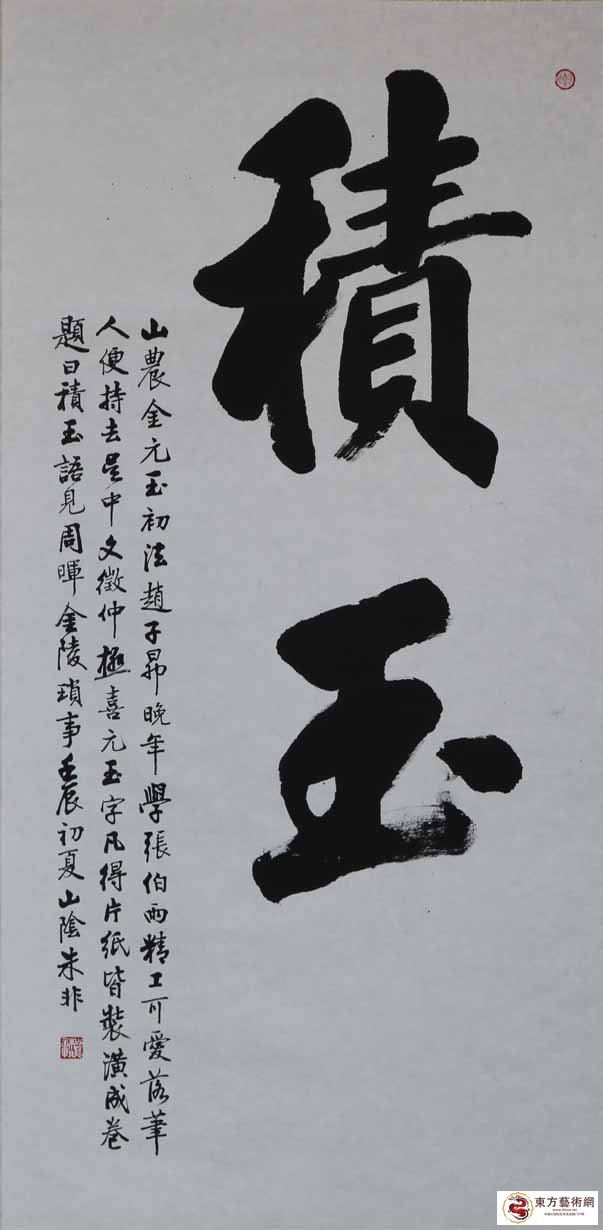 積玉
山農金元玉初法趙子昂晚年學張伯雨精工可愛落筆
人便持去吴中文徵仲極喜元玉字凡得片紙皆裝潢成卷
題曰積玉語見周暉金陵瑣事壬辰初夏山陰朱非
東方藝術網